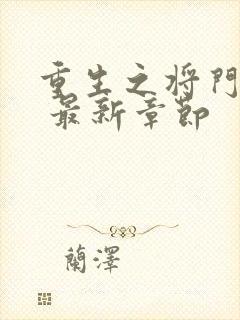 重生之将門
最新章節
蘭澤